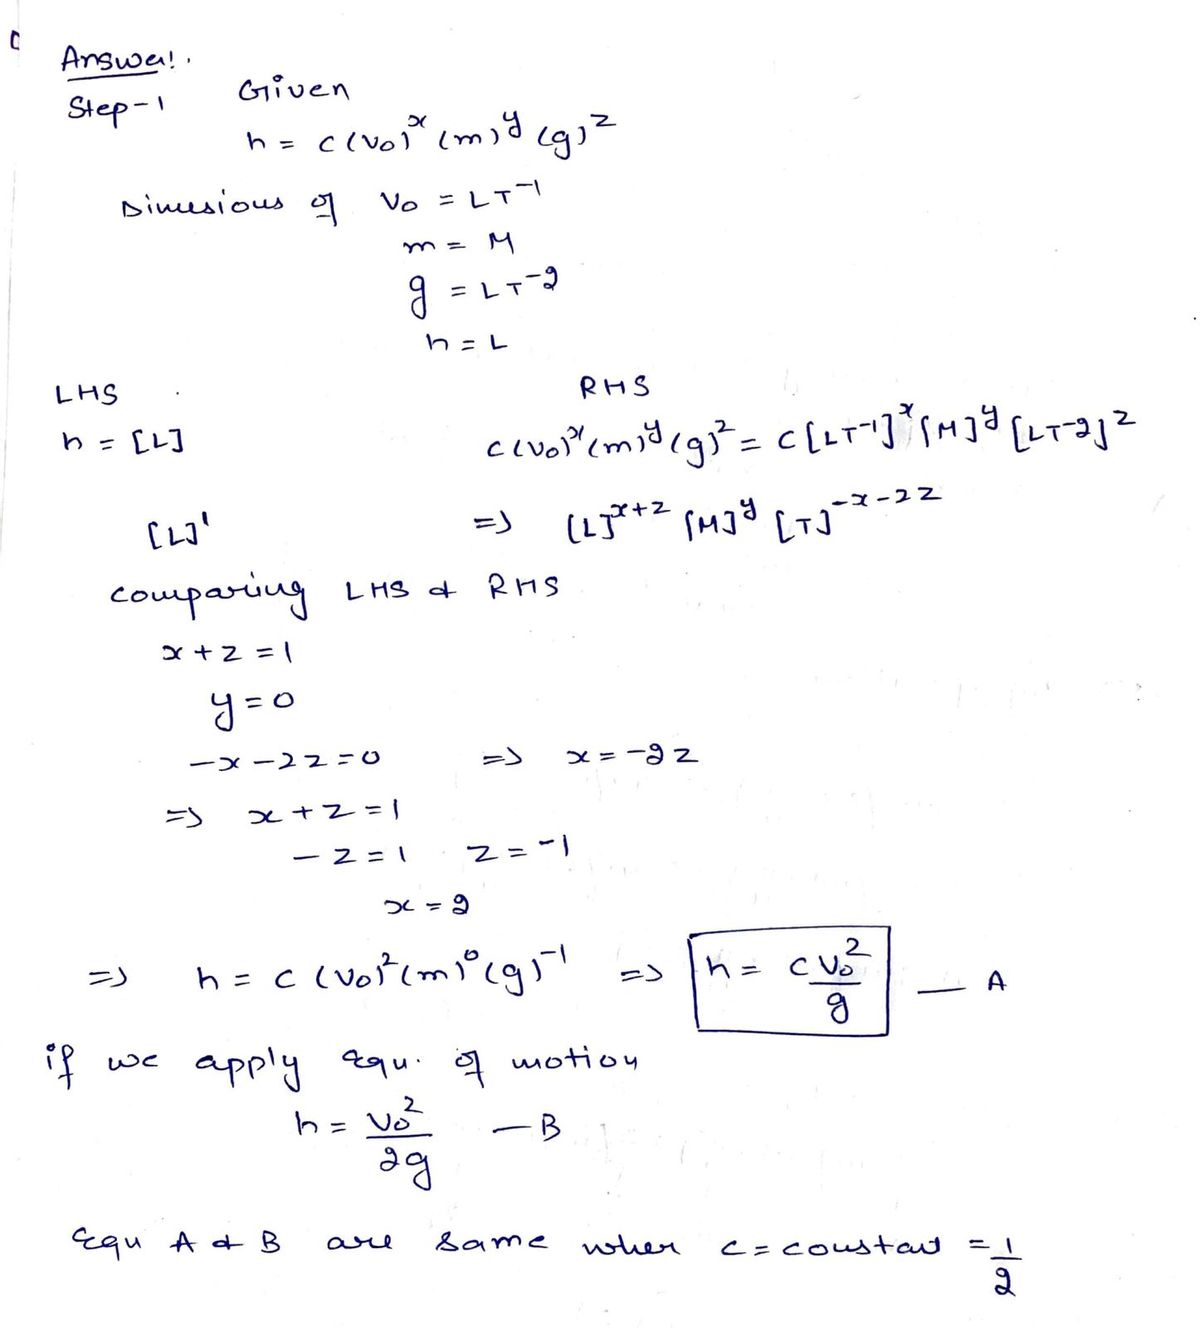 Answer:.
Step-1 Given
h = c(v₀)ˣ (m)ʸ (g)ᶻ
Dimesious of v₀ = LT⁻¹
m = M
g = LT⁻²
h = L
LHS RHS
h = [L] c(v₀)ˣ(m)ʸ(g)ᶻ = c[LT⁻¹]ˣ[M]ʸ[LT⁻²]ᶻ
[L]¹ => [L]ˣ⁺ᶻ [M]ʸ [T]⁻ˣ⁻²ᶻ
comparing LHS & RHS
x + z = 1
y = 0
-x - 2z = 0 => x = -2z
=> x + z = 1
- z = 1 z = -1
x = 2
=> h = c (v₀)² (m)⁰ (g)⁻¹ => h = cv₀²/g — A
if we apply equ. of motion
h = v₀²/2g — B
Equ A & B are same wher c = constant = 1/2